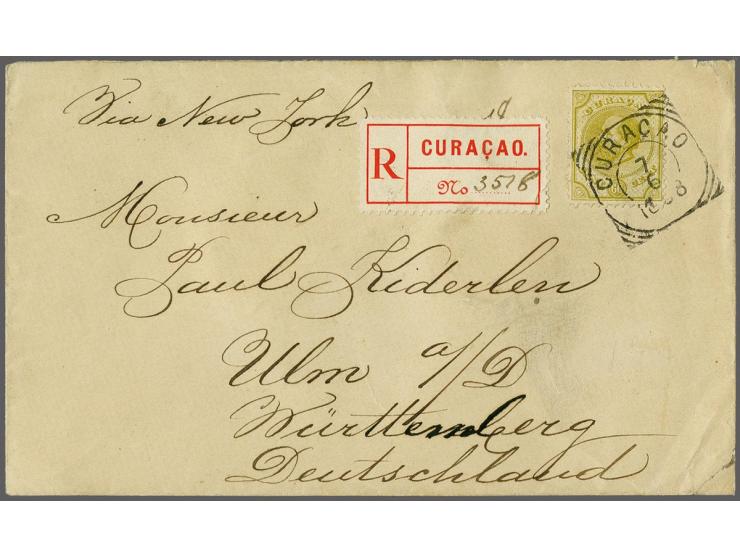 Via New York
R
CURAÇAO.
No 3518
CURAÇAO
CURAÇAO
7
6
Monsieur
Paul Kiderlen
Ulm a/D
Württemberg
Deutschland